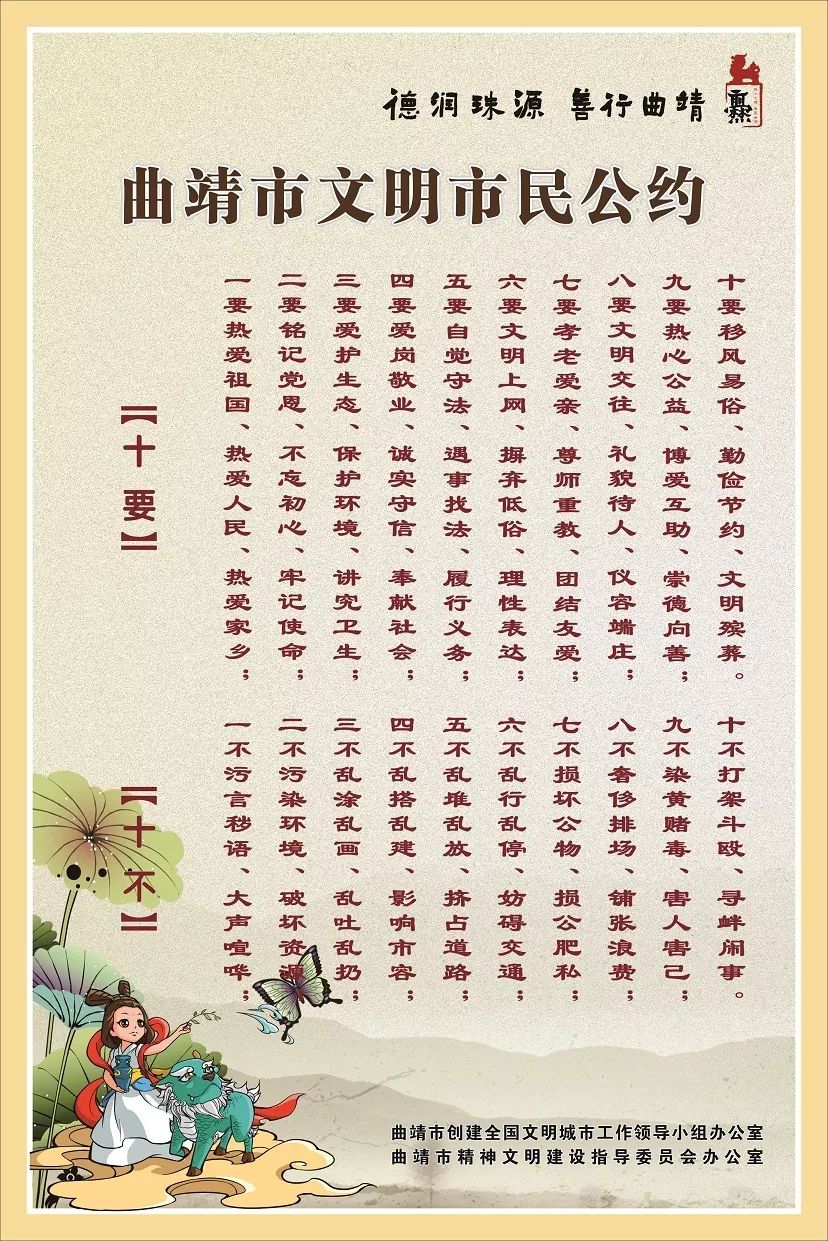 德润珠源 善行曲靖
爨
曲靖市文明市民公约
【十要】
一要热爱祖国、热爱人民、热爱家乡；
二要铭记党恩、不忘初心、牢记使命；
三要爱护生态、保护环境、讲究卫生；
四要爱岗敬业、诚实守信、奉献社会；
五要自觉守法、遇事找法、履行义务；
六要文明上网、摒弃低俗、理性表达；
七要孝老爱亲、尊师重教、团结友爱；
八要文明交往、礼貌待人、仪容端庄；
九要热心公益、博爱互助、崇德向善；
十要移风易俗、勤俭节约、文明殡葬。
【十不】
一不污言秽语、大声喧哗；
二不污染环境、破坏资源；
三不乱涂乱画、乱吐乱扔；
四不乱搭乱建、影响市容；
五不乱堆乱放、挤占道路；
六不乱行乱停、妨碍交通；
七不损坏公物、损公肥私；
八不奢侈排场、铺张浪费；
九不染黄赌毒、害人害己；
十不打架斗殴、寻衅闹事。
曲靖市创建全国文明城市工作领导小组办公室
曲靖市精神文明建设指导委员会办公室